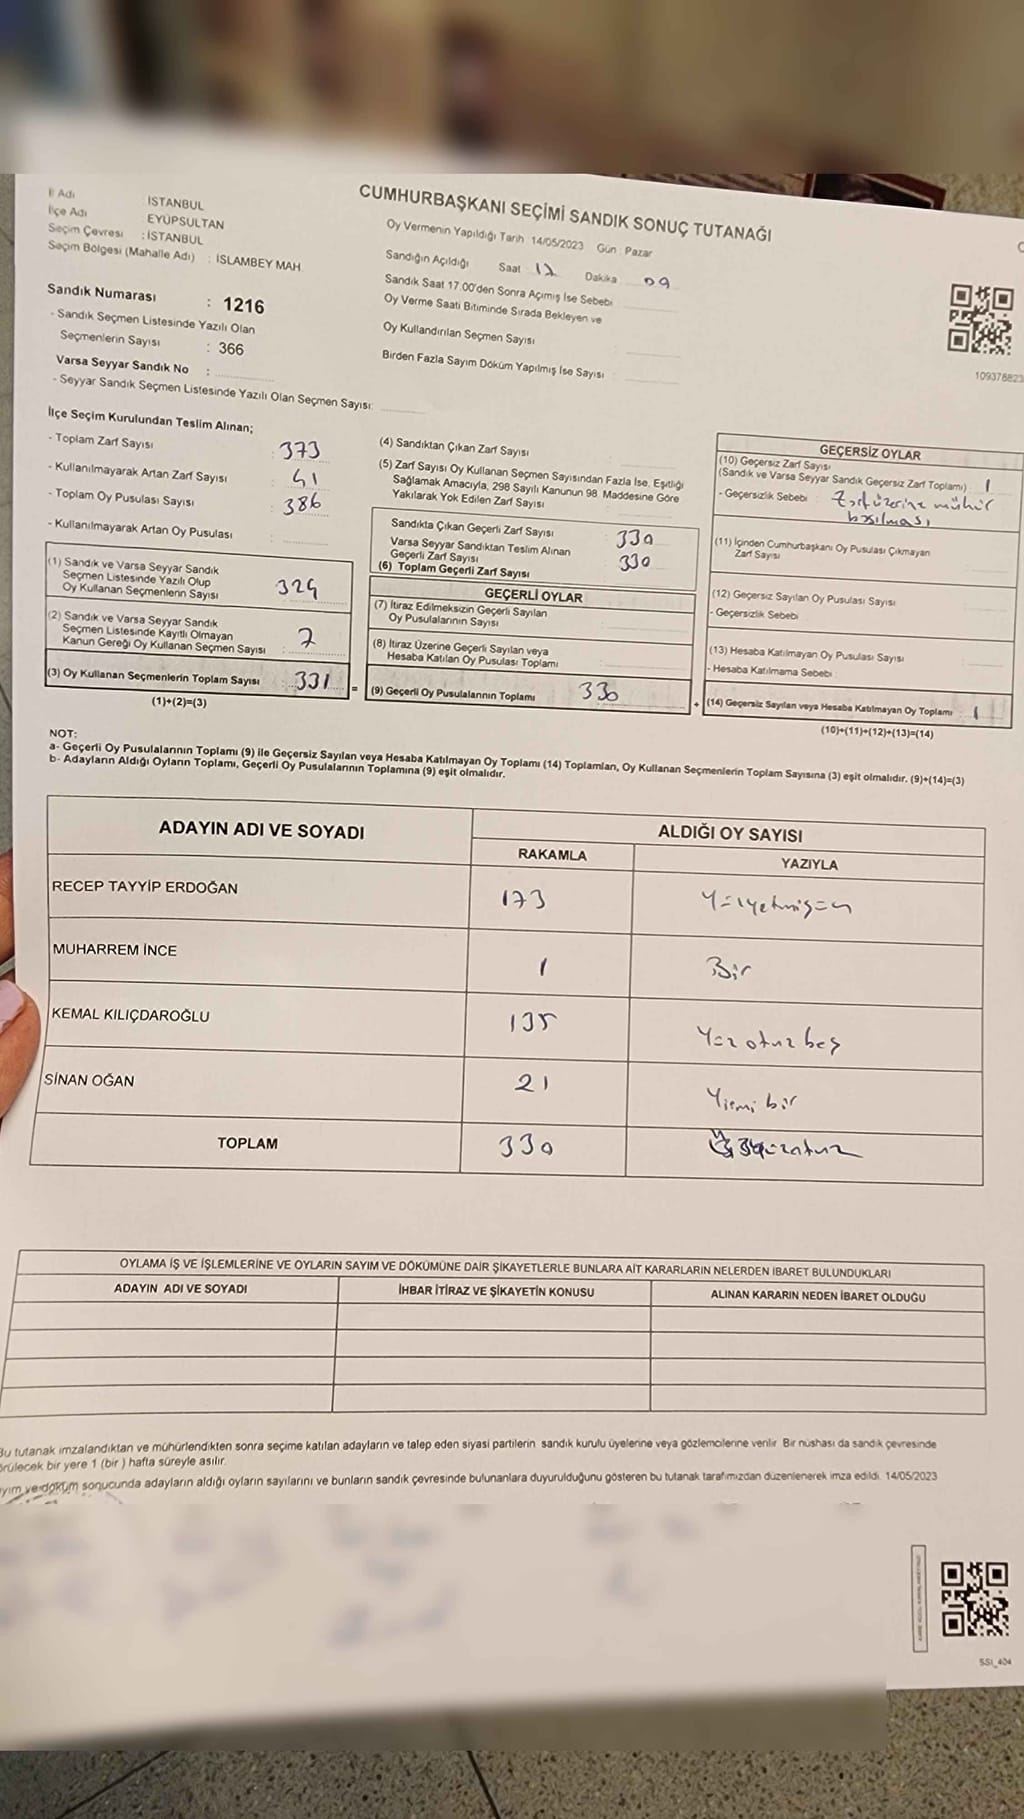 İl Adı : İSTANBUL
İlçe Adı : EYÜPSULTAN
Seçim Çevresi : İSTANBUL
Seçim Bölgesi (Mahalle Adı) : İSLAMBEY MAH.
CUMHURBAŞKANI SEÇİMİ SANDIK SONUÇ TUTANAĞI
Oy Vermenin Yapıldığı Tarih : 14/05/2023 Gün : Pazar
Sandığın Açıldığı Saat 17 Dakika 09
Sandık Saat 17.00'den Sonra Açımış İse Sebebi
Oy Verme Saati Bitiminde Sırada Bekleyen ve
Oy Kullandırılan Seçmen Sayısı
Birden Fazla Sayım Döküm Yapılmış İse Sayısı
Sandık Numarası : 1216
- Sandık Seçmen Listesinde Yazılı Olan
Seçmenlerin Sayısı : 366
Varsa Seyyar Sandık No :
- Seyyar Sandık Seçmen Listesinde Yazılı Olan Seçmen Sayısı:
109376823
İlçe Seçim Kurulundan Teslim Alınan;
- Toplam Zarf Sayısı : 373
- Kullanılmayarak Artan Zarf Sayısı : 41
- Toplam Oy Pusulası Sayısı : 386
- Kullanılmayarak Artan Oy Pusulası :
(1) Sandık ve Varsa Seyyar Sandık
Seçmen Listesinde Yazılı Olup
Oy Kullanan Seçmenlerin Sayısı 324
(2) Sandık ve Varsa Seyyar Sandık
Seçmen Listesinde Kayıtlı Olmayan
Kanun Gereği Oy Kullanan Seçmen Sayısı : 7
(3) Oy Kullanan Seçmenlerin Toplam Sayısı : 331 =
(1)+(2)=(3)
(4) Sandıktan Çıkan Zarf Sayısı
(5) Zarf Sayısı Oy Kullanan Seçmen Sayısından Fazla İse, Eşitliği
Sağlamak Amacıyla, 298 Sayılı Kanunun 98. Maddesine Göre
Yakılarak Yok Edilen Zarf Sayısı
Sandıkta Çıkan Geçerli Zarf Sayısı 330
Varsa Seyyar Sandıktan Teslim Alınan
Geçerli Zarf Sayısı
(6) Toplam Geçerli Zarf Sayısı 330
GEÇERLİ OYLAR
(7) İtiraz Edilmeksizin Geçerli Sayılan
Oy Pusulalarının Sayısı
(8) İtiraz Üzerine Geçerli Sayılan veya
Hesaba Katılan Oy Pusulası Toplamı
(9) Geçerli Oy Pusulalarının Toplamı 330 +
GEÇERSİZ OYLAR
(10) Geçersiz Zarf Sayısı
(Sandık ve Varsa Seyyar Sandık Geçersiz Zarf Toplamı) 1
- Geçersizlik Sebebi : Zarf üzerine mühür
basılması
(11) İçinden Cumhurbaşkanı Oy Pusulası Çıkmayan
Zarf Sayısı
(12) Geçersiz Sayılan Oy Pusulası Sayısı
- Geçersizlik Sebebi :
(13) Hesaba Katılmayan Oy Pusulası Sayısı
- Hesaba Katılmama Sebebi :
(14) Geçersiz Sayılan veya Hesaba Katılmayan Oy Toplamı 1
(10)+(11)+(12)+(13)=(14)
NOT:
a- Geçerli Oy Pusulalarının Toplamı (9) ile Geçersiz Sayılan veya Hesaba Katılmayan Oy Toplamı (14) Toplamları, Oy Kullanan Seçmenlerin Toplam Sayısına (3) eşit olmalıdır. (9)+(14)=(3)
b- Adayların Aldığı Oyların Toplamı, Geçerli Oy Pusulalarının Toplamına (9) eşit olmalıdır.
ADAYIN ADI VE SOYADI ALDIĞI OY SAYISI
RAKAMLA YAZIYLA
RECEP TAYYİP ERDOĞAN 173 Yüzyetmişüç
MUHARREM İNCE 1 Bir
KEMAL KILIÇDAROĞLU 135 Yüz otuz beş
SİNAN OĞAN 21 Yirmi bir
TOPLAM 330
OYLAMA İŞ VE İŞLEMLERİNE VE OYLARIN SAYIM VE DÖKÜMÜNE DAİR ŞİKAYETLERLE BUNLARA AİT KARARLARIN NELERDEN İBARET BULUNDUKLARI
ADAYIN ADI VE SOYADI İHBAR İTİRAZ VE ŞİKAYETİN KONUSU ALINAN KARARIN NEDEN İBARET OLDUĞU
Bu tutanak imzalandıktan ve mühürlendikten sonra seçime katılan adayların ve talep eden siyasi partilerin sandık kurulu üyelerine veya gözlemcilerine verilir. Bir nüshası da sandık çevresinde
örülecek bir yere 1 (bir) hafta süreyle asılır.
yım ve döküm sonucunda adayların aldığı oyların sayılarını ve bunların sandık çevresinde bulunanlara duyurulduğunu gösteren bu tutanak tarafımızdan düzenlenerek imza edildi. 14/05/2023
SSI_404